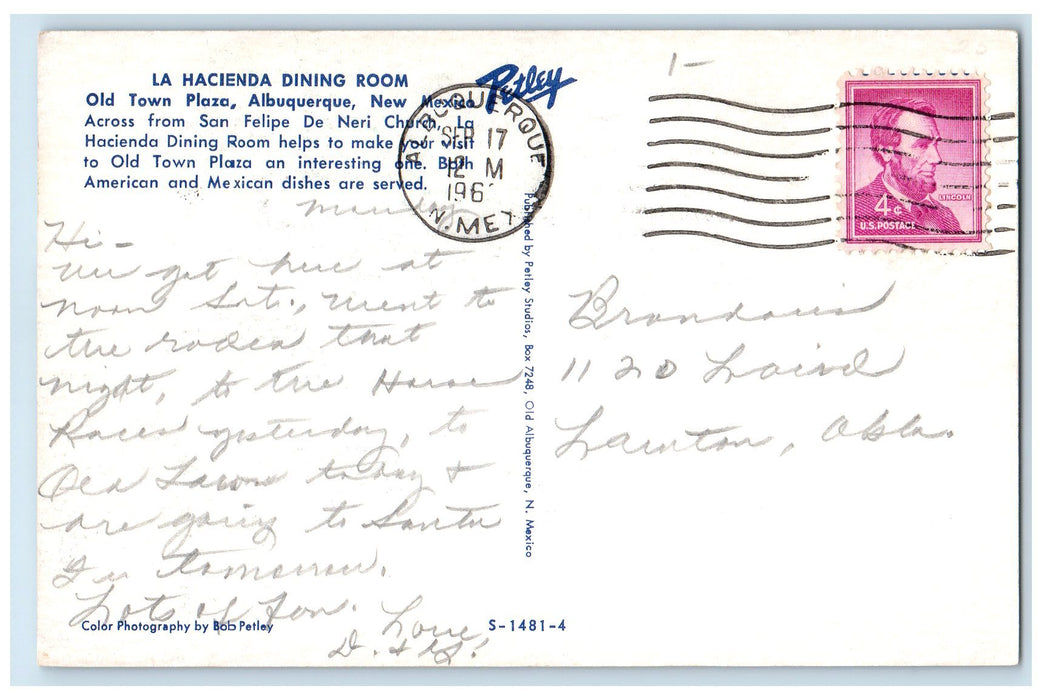 LA HACIENDA DINING ROOM
Old Town Plaza, Albuquerque, New Mexico
Across from San Felipe De Neri Church, La
Hacienda Dining Room helps to make your visit
to Old Town Plaza an interesting one. Both
American and Mexican dishes are served.
Petley
ALBUQUERQUE
SEP 17
12 M
196
N. MEX
1-
LINCOLN
4¢
U.S. POSTAGE
Monday
Hi-
We got here at
noon Sat., went to
the rodeo that
night, to the Horse
Races yesterday, to
Old Town today &
are going to Santa
Fe tomorrow.
Lots of fun.
Love,
D. &
Published by Petley Studios, Box 7248, Old Albuquerque, N. Mexico
1120 Laird
Lawton, Okla.
Color Photography by Bob Petley
S-1481-4